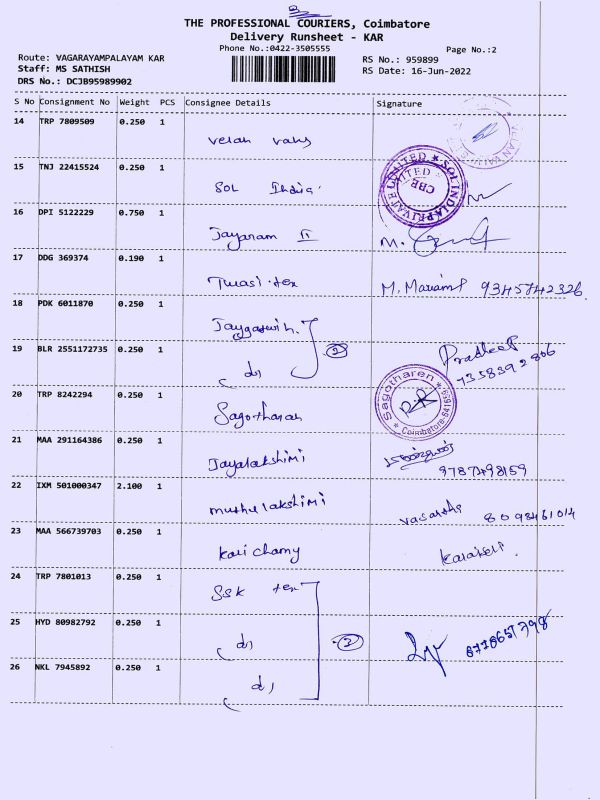 3
THE PROFESSIONAL COURIERS, Coimbatore
Delivery Runsheet - KAR
Phone No.:0422-3505555
Page No.:2
Route: VAGARAYAMPALAYAM KAR
RS No.: 959899
Staff: MS SATHISH
RS Date: 16-Jun-2022
DRS No.: DCJB95989902
S No Consignment No Weight PCS Consignee Details Signature
14 TRP 7809509 0.250 1
Velan
15 TNJ 22415524 0.250 1
SOL India
SOL INDIA PRIVATE LIMITED
CBE
16 DPI 5122229 0.750 1
Jayaram II
17 DDG 369374 0.190 1
tex M. 9345742326
18 PDK 6011870 0.250 1
19 BLR 2551172735 0.250 1
2 Pradeep
7358392806
20 TRP 8242294 0.250 1
Sagotharan
Sagotharen
Coimbatore-641659
21 MAA 291164386 0.250 1
Jayalakshimi
22 IXM 501000347 2.100 1
muthulakshimi
23 MAA 566739703 0.250 1
Kari Chamy
24 TRP 7801013 0.250 1
SSK tex
25 HYD 80982792 0.250 1
2
26 NKL 7945892 0.250 1